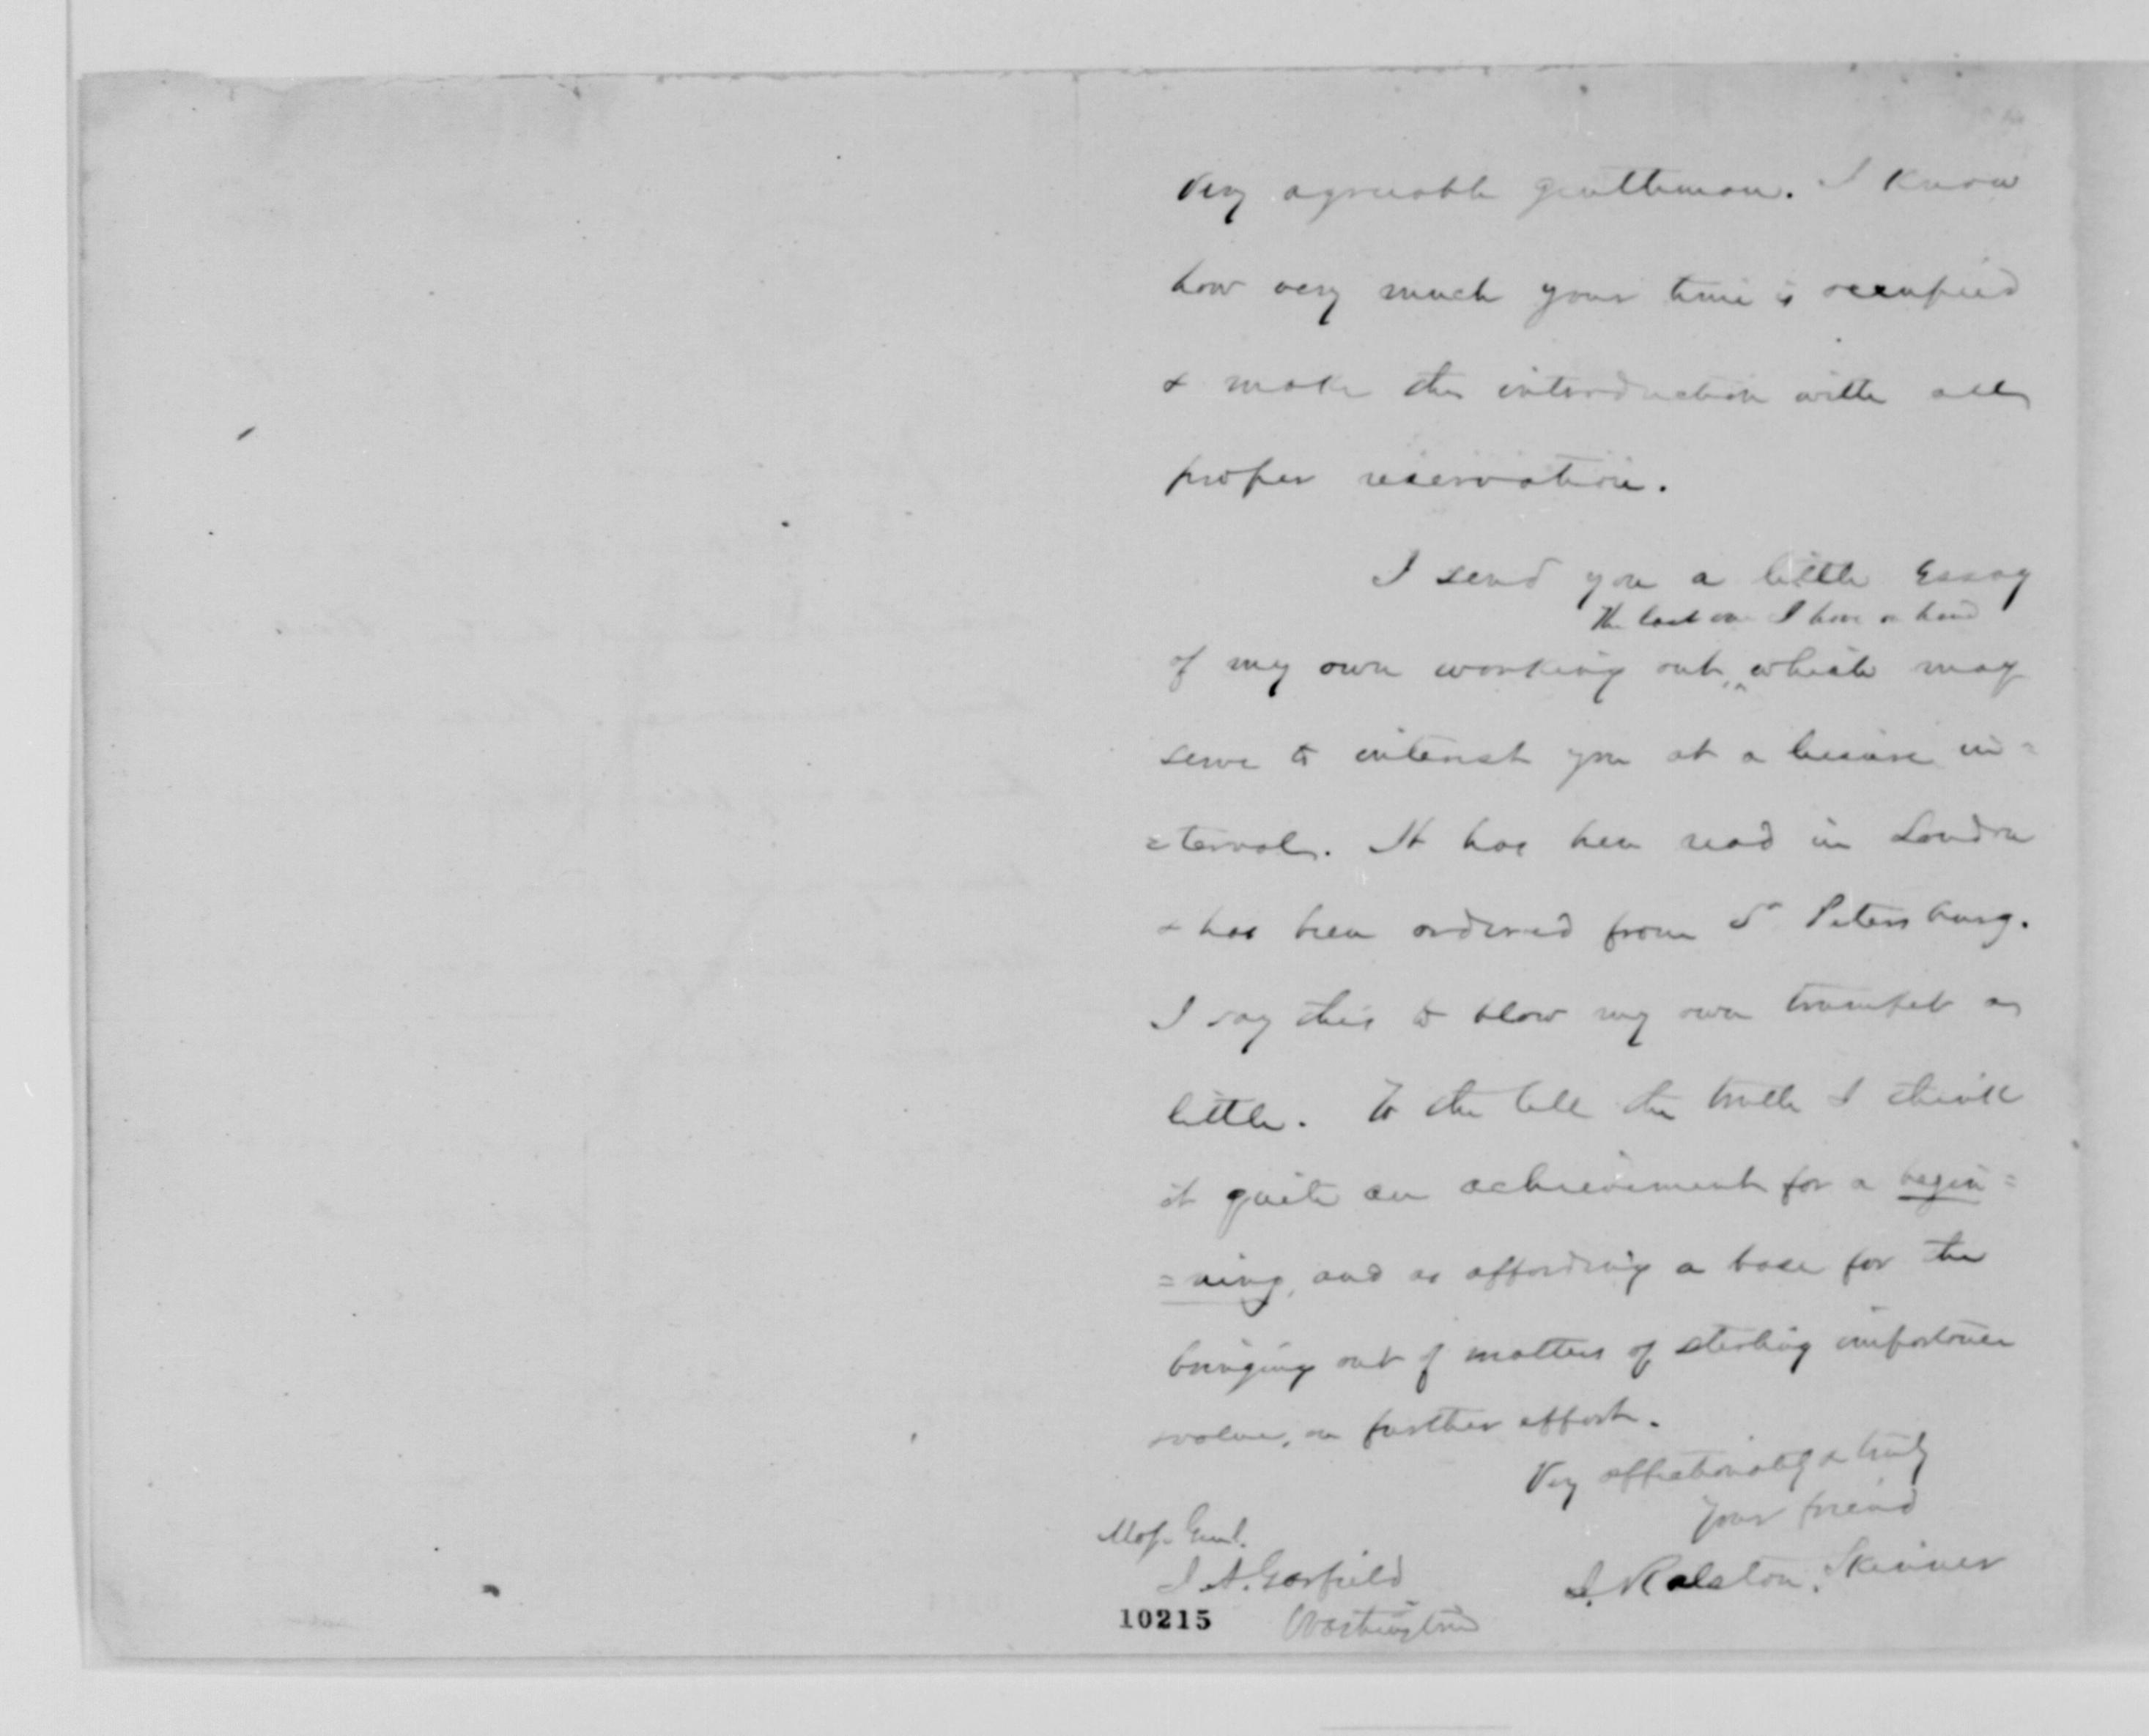 Very agreeable gentleman. I know
how very much your time is occupied
& make the introduction with all
proper reservation.
I send you a little Essay
The last one I have on hand
of my own working out, ^ which may
serve to interest you at a leisure in=
=terval. It has been read in London
& has been ordered from St Petersburg.
I say this to blow my own trumpet a
little. To the tell the truth I think
it quite an achievement for a begin=
=ning, and as affording a base for the
bringing out of matters of sterling importance
value, on further effort.
Very affectionately & truly
your friend
J. Ralston Skinner
Maj. Genl.
J. A. Garfield
Washington
10215